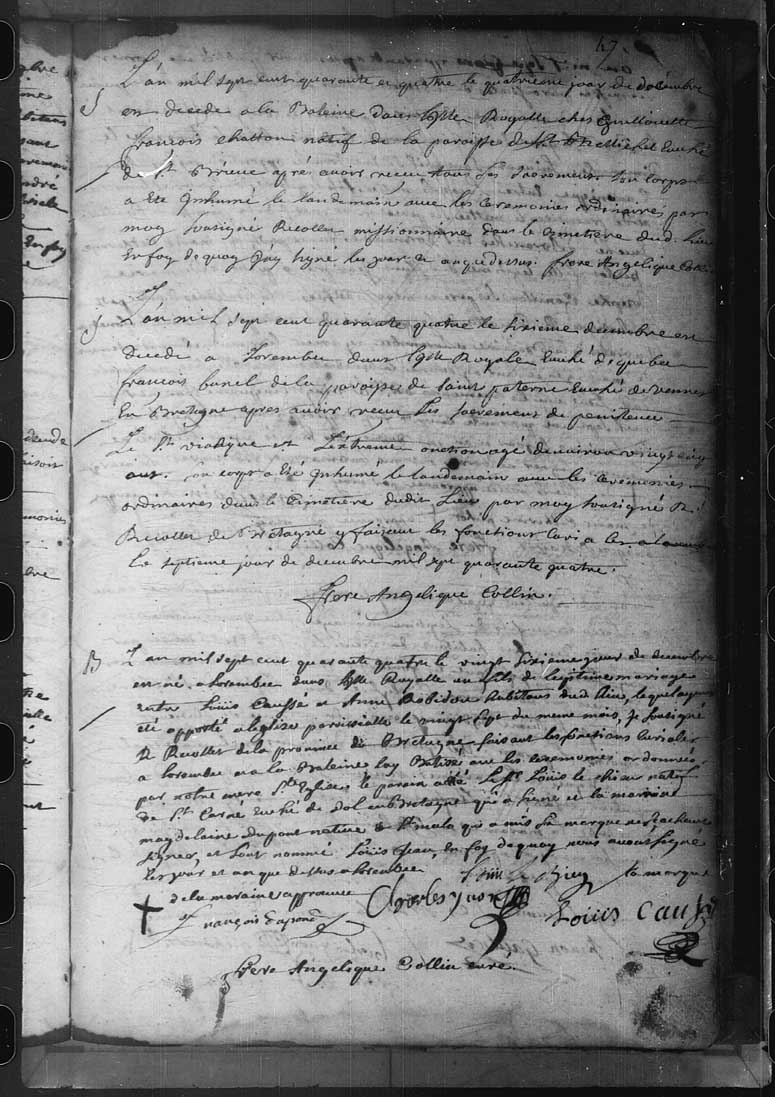 47
L'an mil sept cent quarante et quatre le quatrieme jour de décembre
S
est decedé a la Baleine dans l'isle Royalle chez
francois chatton natif de la paroisse de St Michel Eveché
de St Brieuc aprés avoir receu tous les sacrements son corps
a Eté Inhumé le landemain avec les Ceremonies ordinaires par
moy soussigné Recollet missionnaire dans le Cimetiere dud. Lieu
En foy de quoy J'ay signé les jour et an que dessus. frere Angelique Collin
S
L'an mil sept cent quarante quatre le sixieme decembre est
decedé a Lorembec dans l'isle Royale Eveché de quebec
francois burel de la paroisse de saint paterne Eveché de vennes
En Bretagne apres avoir receu les sacrement de penitence
Le St viatique et L'extreme onction agé d'environ vingt cinq
ans. son corps a Eté Inhumé le landemain avec les Ceremonies
ordinaires dans le Cimetiere dudit Lieu par moy soussigné R.
Recollet de Bretagne y faisant les fonctions Curiales a
Le septieme jour de decembre mil sept quarante quatre.
frere Angelique Collin.
B
L'an mil sept cent quarante quatre le vingt sixieme jour de decembre
est né a Lorembec dans l'isle Royalle un fils du legitime mariage
entre Louis Caussé et Anne Robidou habitans dud Lieu, lequel ayant
été apporté a l'eglise parroissialle le vingt sept du meme mois, Je soussigné
R Recollet de la province de Bretagne faisant les fonctions Curiales
a Lorembec et a la Baleine l'ay Batisé avec les ceremonies ordonnées
par notre mere Ste Eglise. le parain a été le Sr Louis le natif
de St Carné Evéché de dol en Bretagne qui a signé et la maraine
magdelaine dupont native de St malo qui a mis sa marque ne sçachant
signer, et l'ont nommé Louis Jean, En foy de quoy nous avons signé
les jour et an que dessus a Lorembec
la marque
de la maraine approuvée
Charles yvon
Louis Caussé
francois
frere Angelique Collin curé.